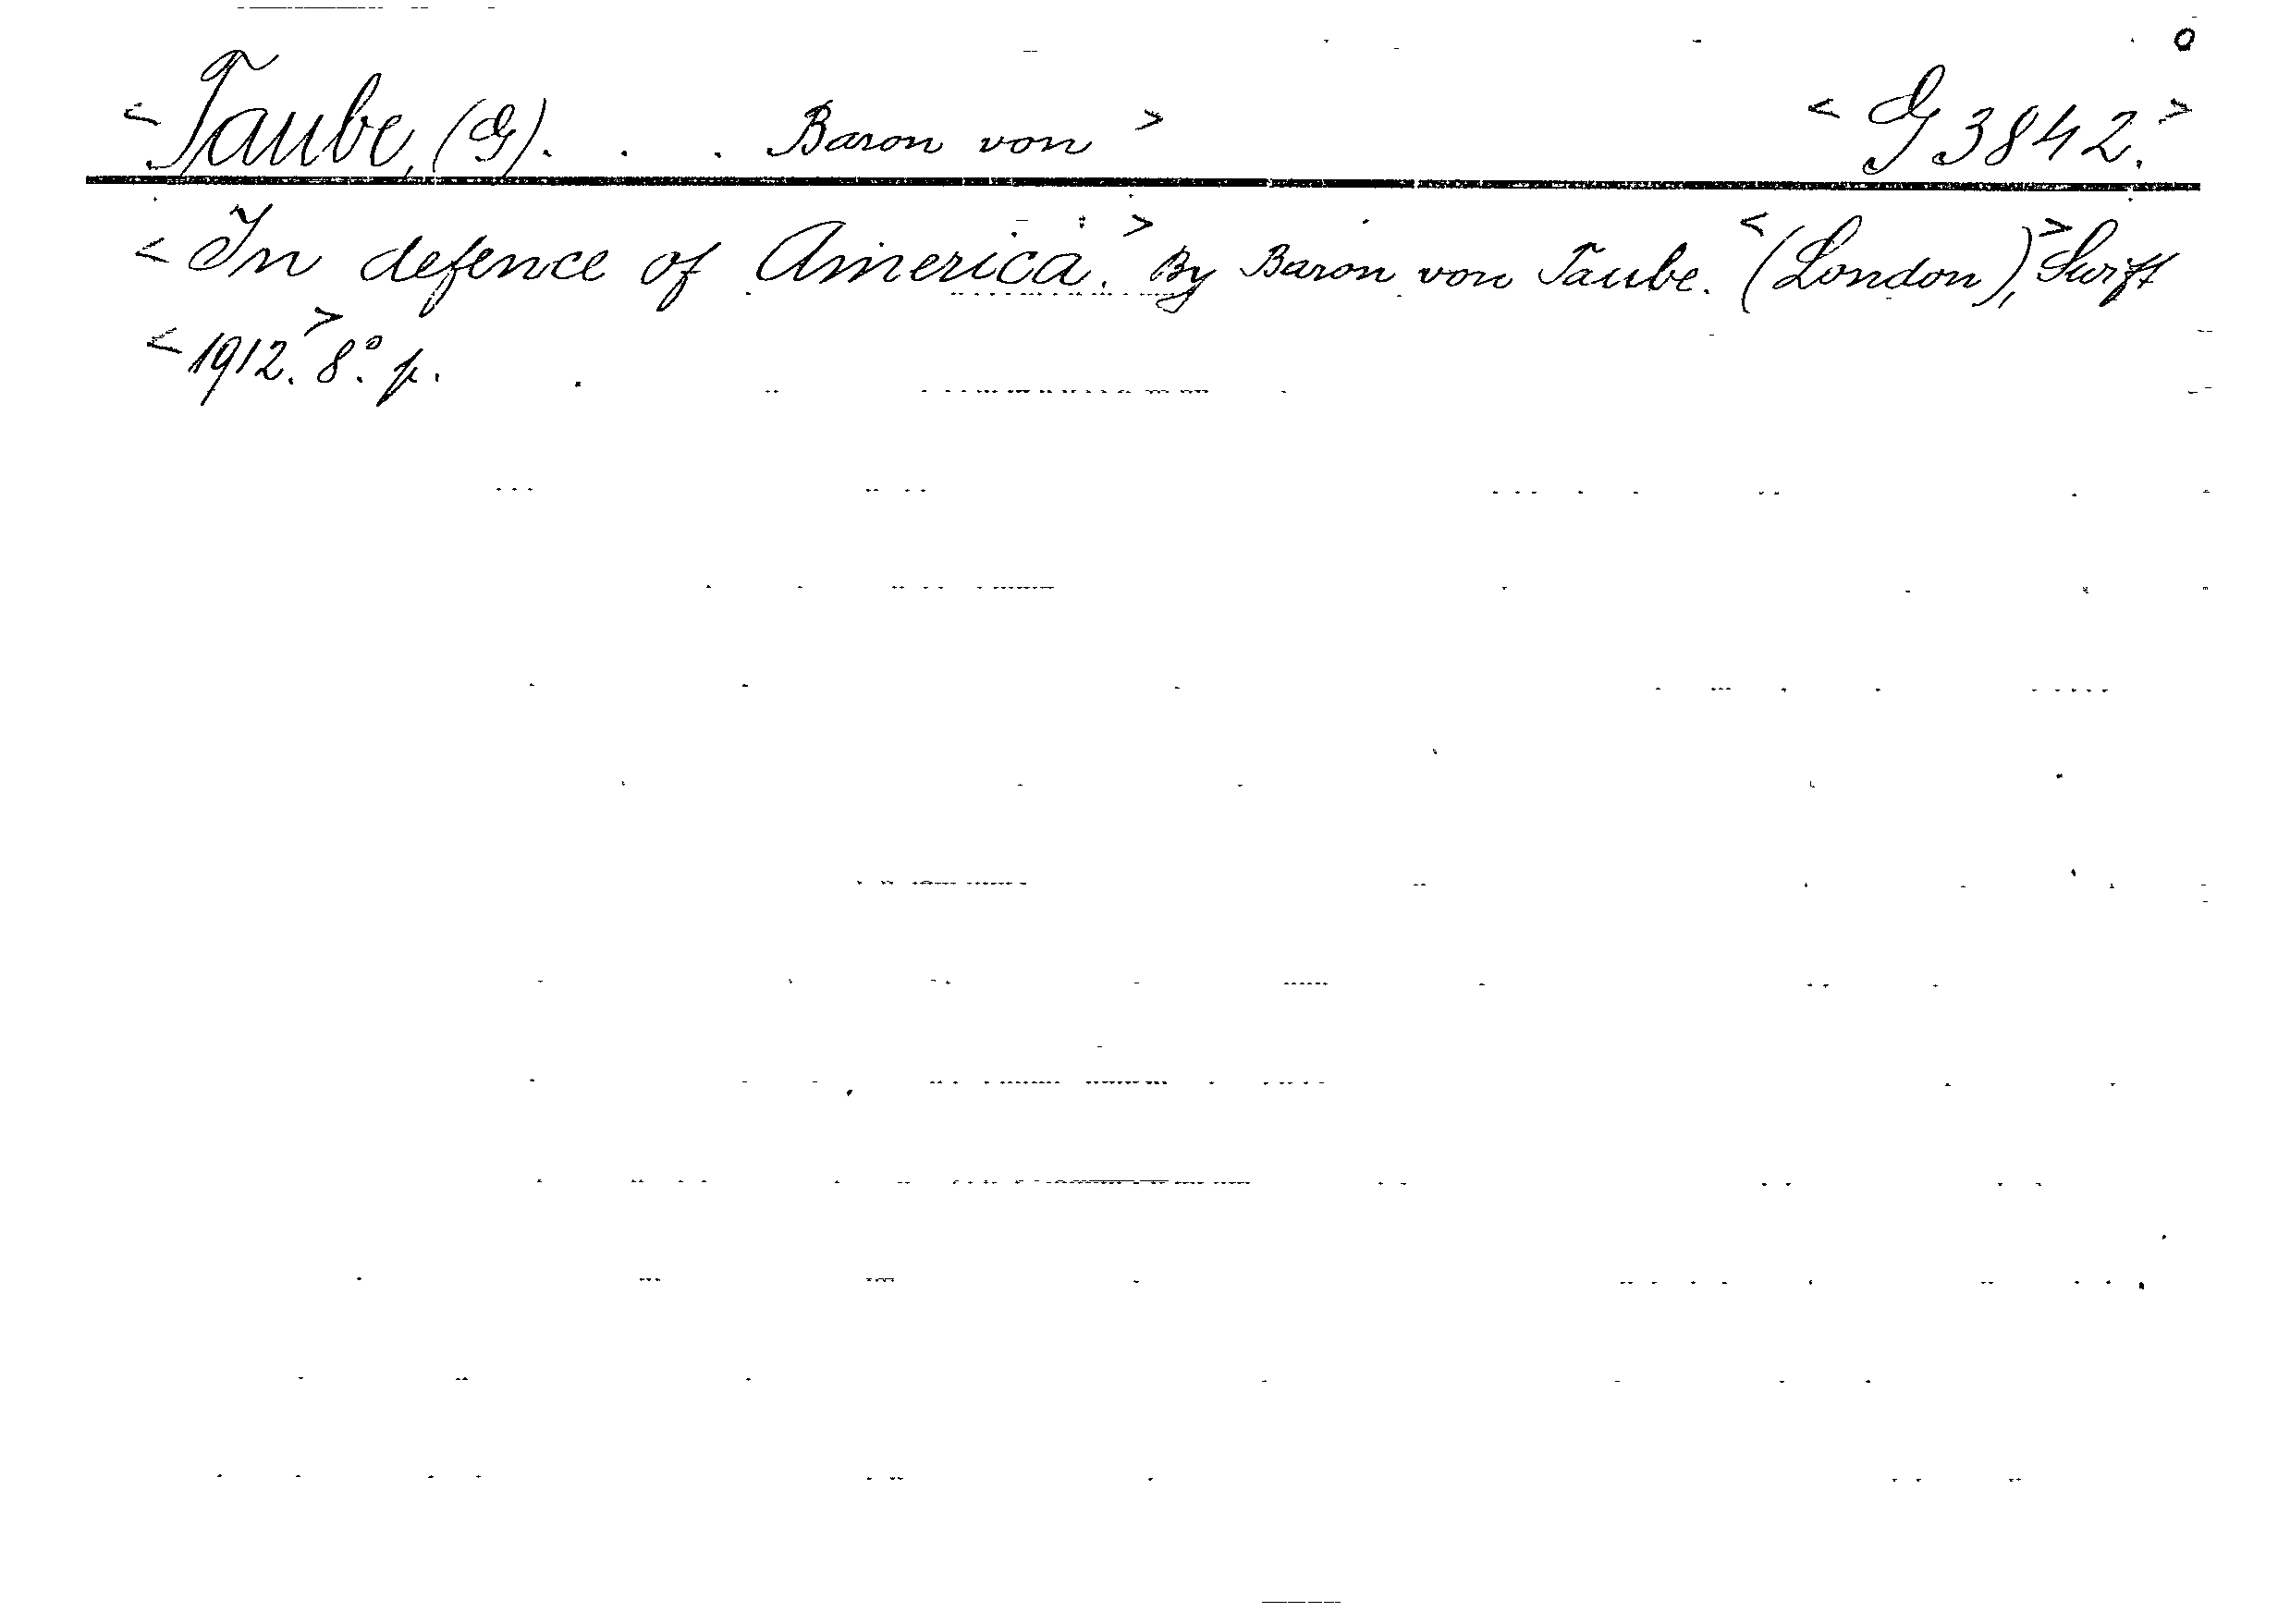 <Taube, (G). . . Baron von> <G 3842.>
<In defence of America.> By Baron von Taube. <(London),> Swift
<1912.> 8º. p.